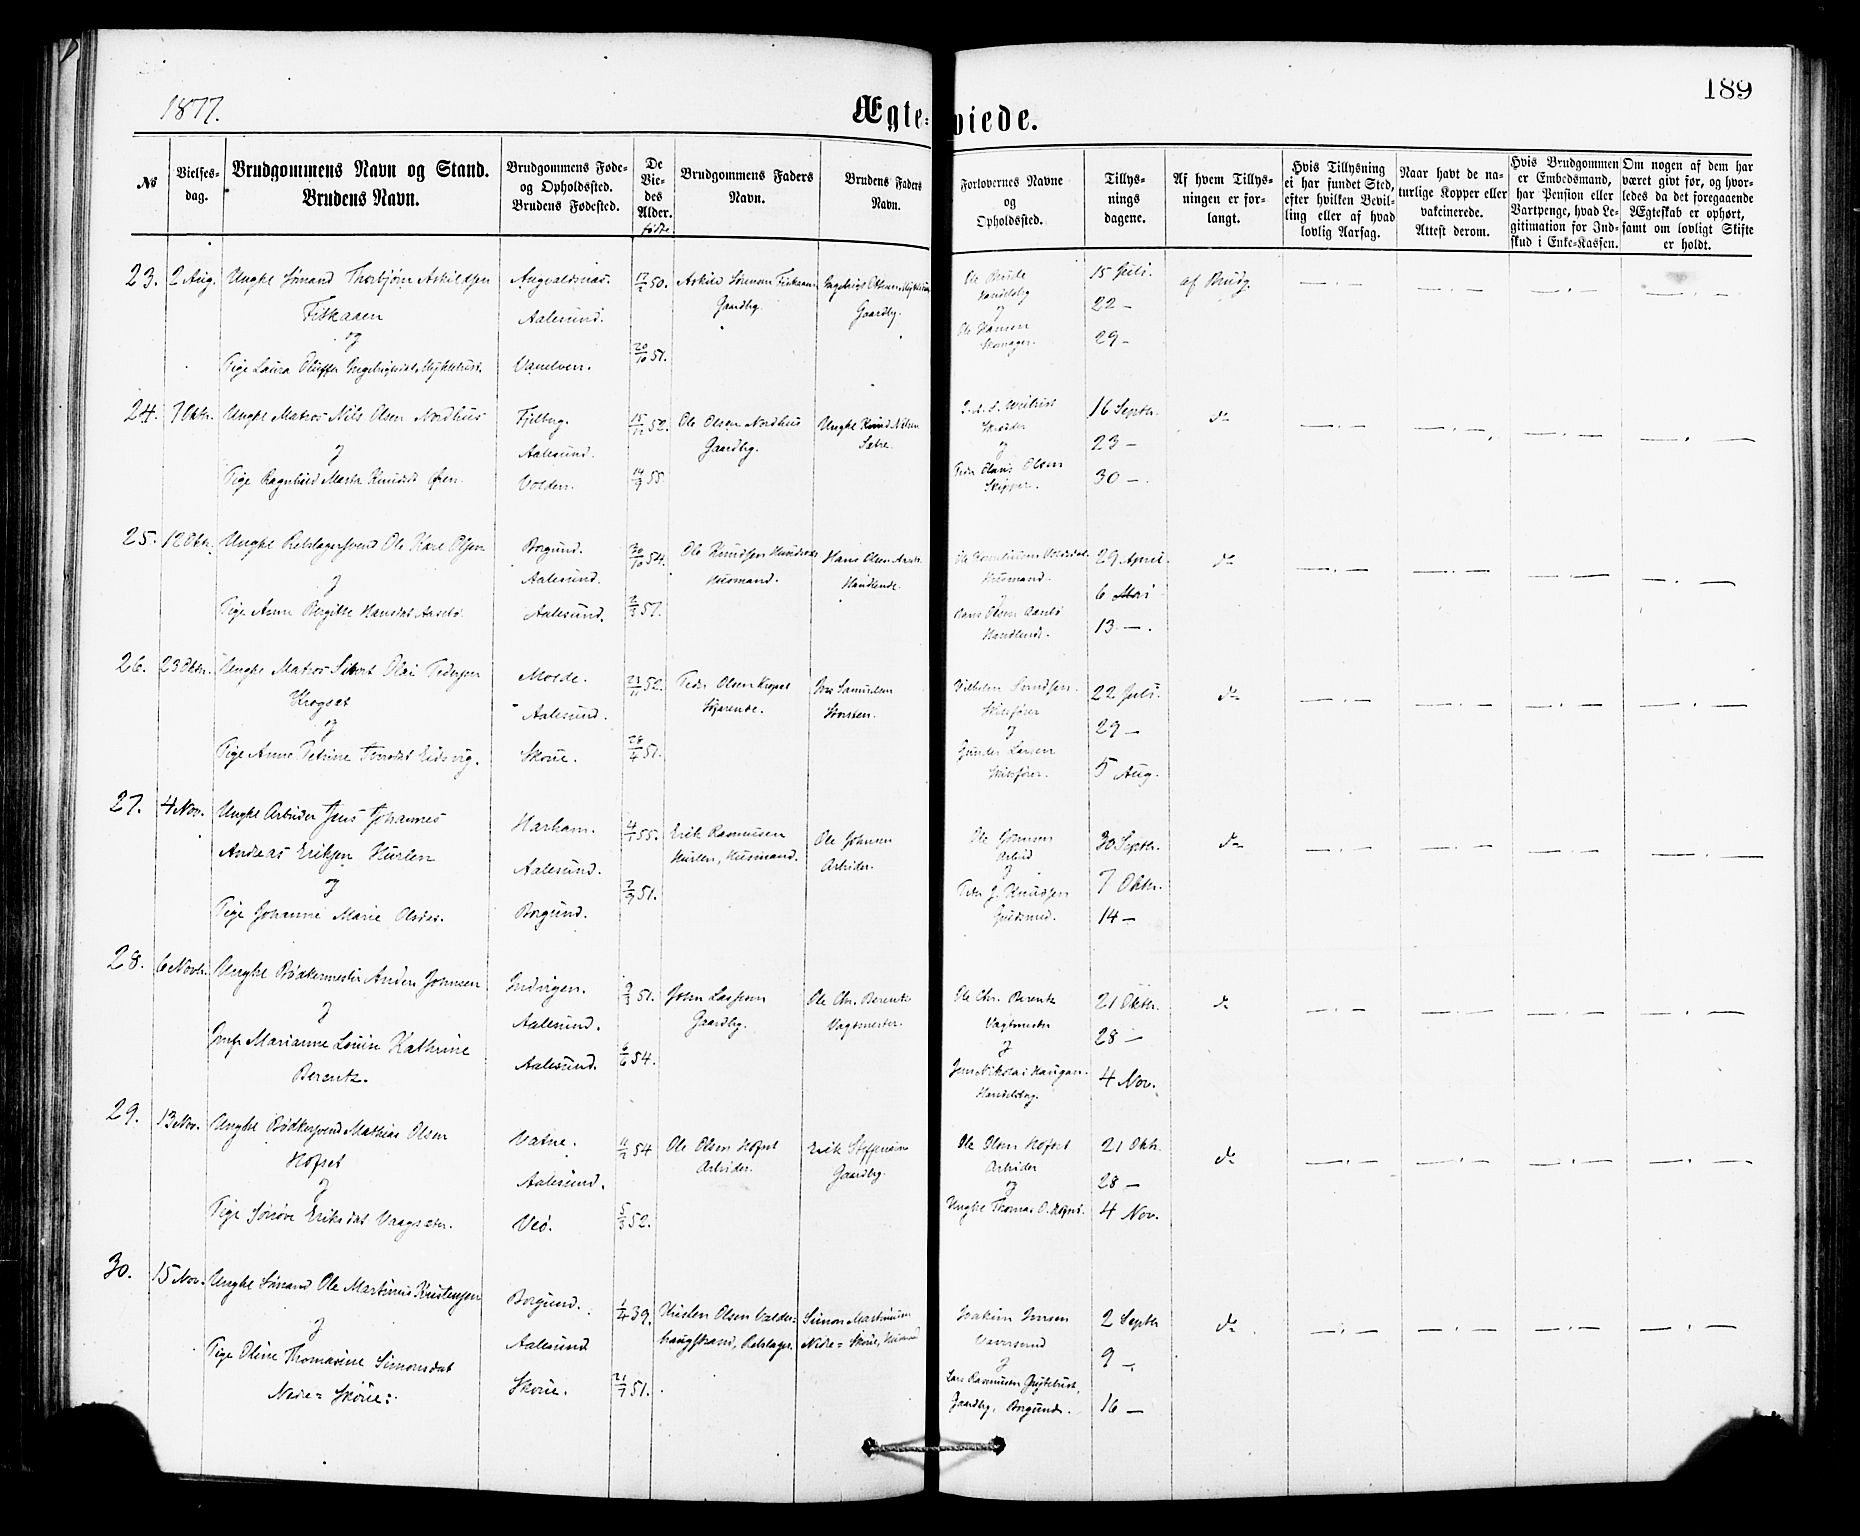 1877.
189
Ægte-
viede.
No
Vielses-
dag.
Brudgommens Navn og Stand.
Brudens Navn.
Brudgommens Føde-
og Opholdssted.
Brudens Fødested.
De
Vie-
des
Alder.
født
Brudgommens Faders
Navn.
Brudens Faders
Navn.
Forlovernes Navne
og
Opholdssted.
Tillys-
nings
dagene.
Af hvem Tillys-
ningen er for-
langt.
Hvis Tillysning
ei har fundet Sted,
efter hvilken Bevil-
ling eller af hvad
lovlig Aarsag.
Naar havt de na-
turlige Kopper eller
vakcinerede.
Attest derom.
Hvis Brudgommen
er Embedsmand,
har Pension eller
Vartpenge, hvad Le-
gitimation for Ind-
skud i Enke-Kassen.
Om nogen af dem har
været givt før, og hvor-
ledes da det foregaaende
Ægteskab er ophørt,
samt om lovligt Skifte
er holdt.
23. 2 Aug. Ungkl Sømand Thorbjørn Askildsen
Fiskaaen
og
Pige Laura Oluffa Myklebust.
Augvaldsnæs.
Aalesund.
Vanelven.
50.
20/10 51.
Askild Sørensen Fiskaaen
Gaardbg.
Gaardbg.
Ole
Handelsbg
og
Ole Hansen
15 Juli.
22 —
29 —
af Brudg.
24. 7 Oktr. Ungkl Matros Nils Olsen Nordhus
og
Pige Ragnhild Marta Knudsd Øien.
Fjelberg.
Aalesund.
Volden.
52.
55
Ole Olsen Nordhus
Gaardbg.
Ungkl Knud Nilsen
Sætre.
Skræder
og
Peder Olaus Olsen
Skipper.
16 Septr.
23 —
30 —
do
25. 12 Oktr. Ungkl Rebslagersvend Ole Karl Olsen
og
Pige Anne Bergitte Hansdat Aasebø.
Borgund.
Aalesund.
Aalesund.
30/10 54.
2/3 57.
Ole Knudsen
Husmand.
Hans Olsen
Handlende.
Husmand.
Hans Olsen Aasebø
Handlende.
29 April.
6 Mai
13 —.
do
26. 23 Oktr. Ungkl Matros Sivert Olai Pedersen
Krogsæt
og
Pige Anne Petrine Eidsvig.
Molde.
Aalesund.
Skoue.
52.
51.
Peder Olsen
Søfarende.
Jens Samuelsen
Vilhelm
Skibsfører
og
Gunder Larsen
Skibsfører.
22 Juli.
29 —
5 Aug.
do
27. 4 Nov. Ungkl Arbeider Jens Johannes
Andreas Eriksen Hurlen
og
Pige Johanne Marie Olsdat.
Harham.
Aalesund.
Borgund.
55.
51.
Erik Rasmussen
Hurlen, Husmand.
Ole Johnsen
Arbeider.
Ole Johnsen
Arbeid
og
Peder J. Knudsen
Guldsmed.
30 Septr.
7 Oktr.
14 —
do
28. 6 Novbr. Ungkl Bødkermester Anders Johnsen
og
Jmfr Marianne Louise Kathrine
Berentz.
Indvigen.
Aalesund.
Aalesund.
9/3 51.
6/6 54.
John Lassesen
Gaardbg.
Ole Chr. Berentz
Vagtmester.
Ole Chr. Berentz
Vagtmester
og
Jens Nikolai Haugan
Handelsbg.
21 Oktr.
28 —
4 Nov.
do
29. 13 Nov. Ungkl Bødkersvend Mathias Olsen
Hofset
og
Pige Sønnøve Eriksdat Vaagsæter.
Vatne.
Aalesund.
Veø.
54
5/3 52.
Ole Olsen Hofset
Arbeider.
Erik Steffensen
Gaardbg.
Ole Olsen Hofset
Arbeider
og
Ungkl Thomas O. Hofset.
21 Oktr.
28 —
4 Nov.
do
30. 15 Nov. Ungkl Sømand Ole Martinus Kristensen
og
Pige Oline Thomasine Simonsdat
Nedre-Skoue:
Borgund.
Aalesund
Skoue.
1/4 39.
21/7 51.
Kristen Olsen Valder-
haugstrand, Rebslager.
Simon Martinusen
Nedre-Skoue, Husmand
Joakim Jensen
og
Lars Rasmussen
Gaardbg, Borgund.
2 Septr
9 —
16 —
do